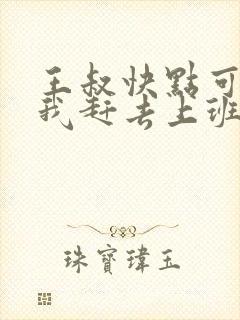 王叔快點可
我赶去上班
珠寶瑋玉